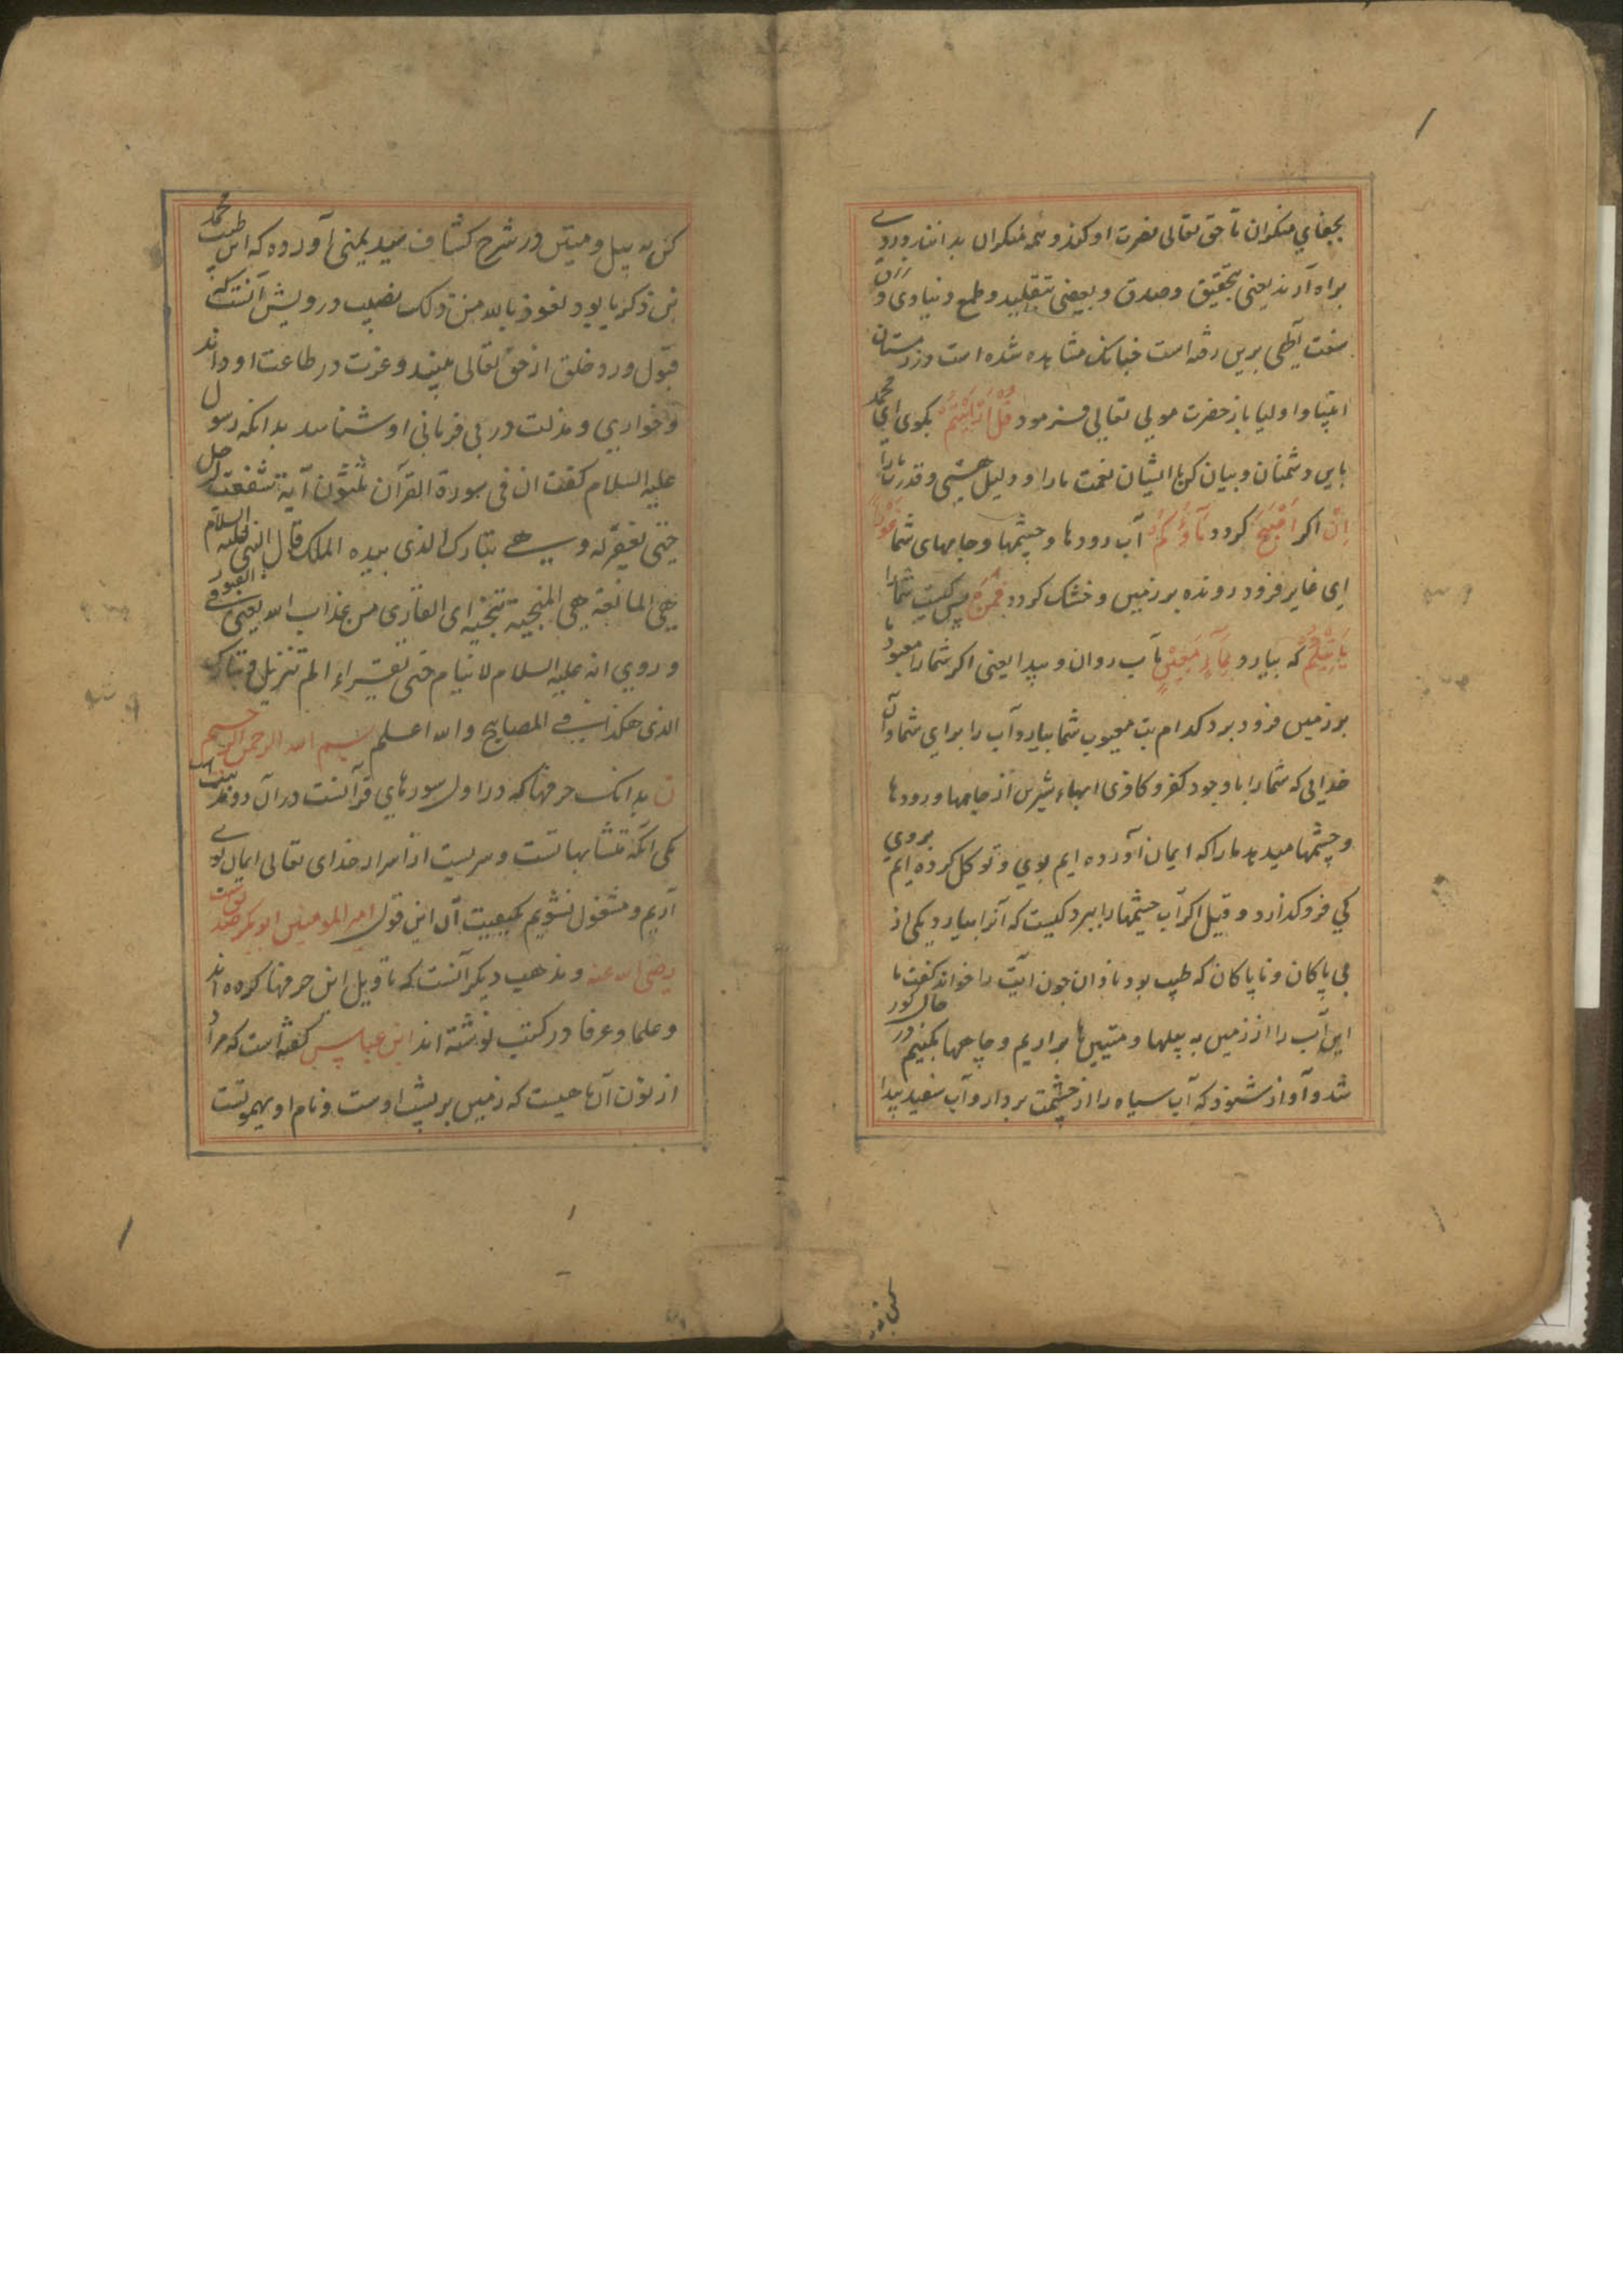 بجفاي منکران تا حق تعالی نصرت او کند و همه منکران بدانند و روی
براه آرند یعنی بتحقیق و صدق و بعضی بتقلید و طمع دنیاوی و
سنت آلهی برین رفته است چنانک مشاهده شده است در زمان
انبیا و اولیا باز حضرت مولی تعالی فرمود قُلْ اَرَاَیْتُمْ بکوی ای محمد
باین دشمنان و بیان کن با ایشان نعمت ما را و دلیل هستی و قدرت ما را
اِنْ اکر اَصْبَحَ کردد مَآؤُکُمْ آب رودها و چشمها و چاههای شما غَوْرًا
ای غایر فرود رونده بر زمین و خشک کردد فَمَنْ پس کیست شما را
یَاْتِیْکُمْ که بیارد بِمَآءٍ مَعِیْنٍ آب روان و پیدا یعنی اکر شما را معبود
بر زمین فرود برد کدام بت معیوب شما بیارد آب را برای شما و آن
خدایی که شما را با وجود کفر و کافری ابهاء شیرین از چاهها و رودها
و چشمها میدهد ما را که ایمان آورده ایم بوی و توکل کرده ایم بروی
کی فرو کذارد و قیل اکر آب چشمها را ببرد کیست که آنرا بیارد و یکی از
بی پاکان و ناپاکان که طبیب بود نادان چون آیت را خواند کفت ما
این آب را از زمین به بیلها و متینها براریم و چاهها بکنیم در حال کور
شد و آواز شنود که آب سیاه را از چشمت بردار و آب سفید پیدا
کن به بیل و میتین در شرح کشاف سید یمنی آورده که این طبیب محمد
بن زکریا بود نعوذ بالله من ذلک نصیب درویش آنست که
قبول و رد خلق از حق تعالی بیند و عزت در طاعت او داند
و خواری و مذلت در بی فرمانی او شناسد بدانکه رسول
علیه السلام کفت ان فی سورة القرآن ثلثون آیة شفعت لرجل
حتی یغفر له و هی تبارک الذی بیده الملک قال النبی علیه السلام
هی المانعة هی المنجیة تنجیه ای القاری من عذاب الله یعنی فی القبور
و روی انه علیه السلام لا ینام حتی یقراء الم تنزیل و تبارک
الذی هکذا فی المصابیح والله اعلم بسم الله الرحمن الرحیم
ن بدانک حرفها که در اول سورهای قرآنست در آن دو مذهب است
یکی آنکه متشابهاتست و سریست از اسرار خدای تعالی ایمان بوی
آریم و مشغول نشویم بکیفیت آن این قول امیر المومنین ابوبکر صدیقست
رضی الله عنه و مذهب دیکر آنست که تاویل این حرفها کرده اند
و علما و عرفا در کتب نوشته اند ابن عباس کفته است که مراد
از نون آن ماهیست که زمین بر پشت اوست و نام او یهموتست